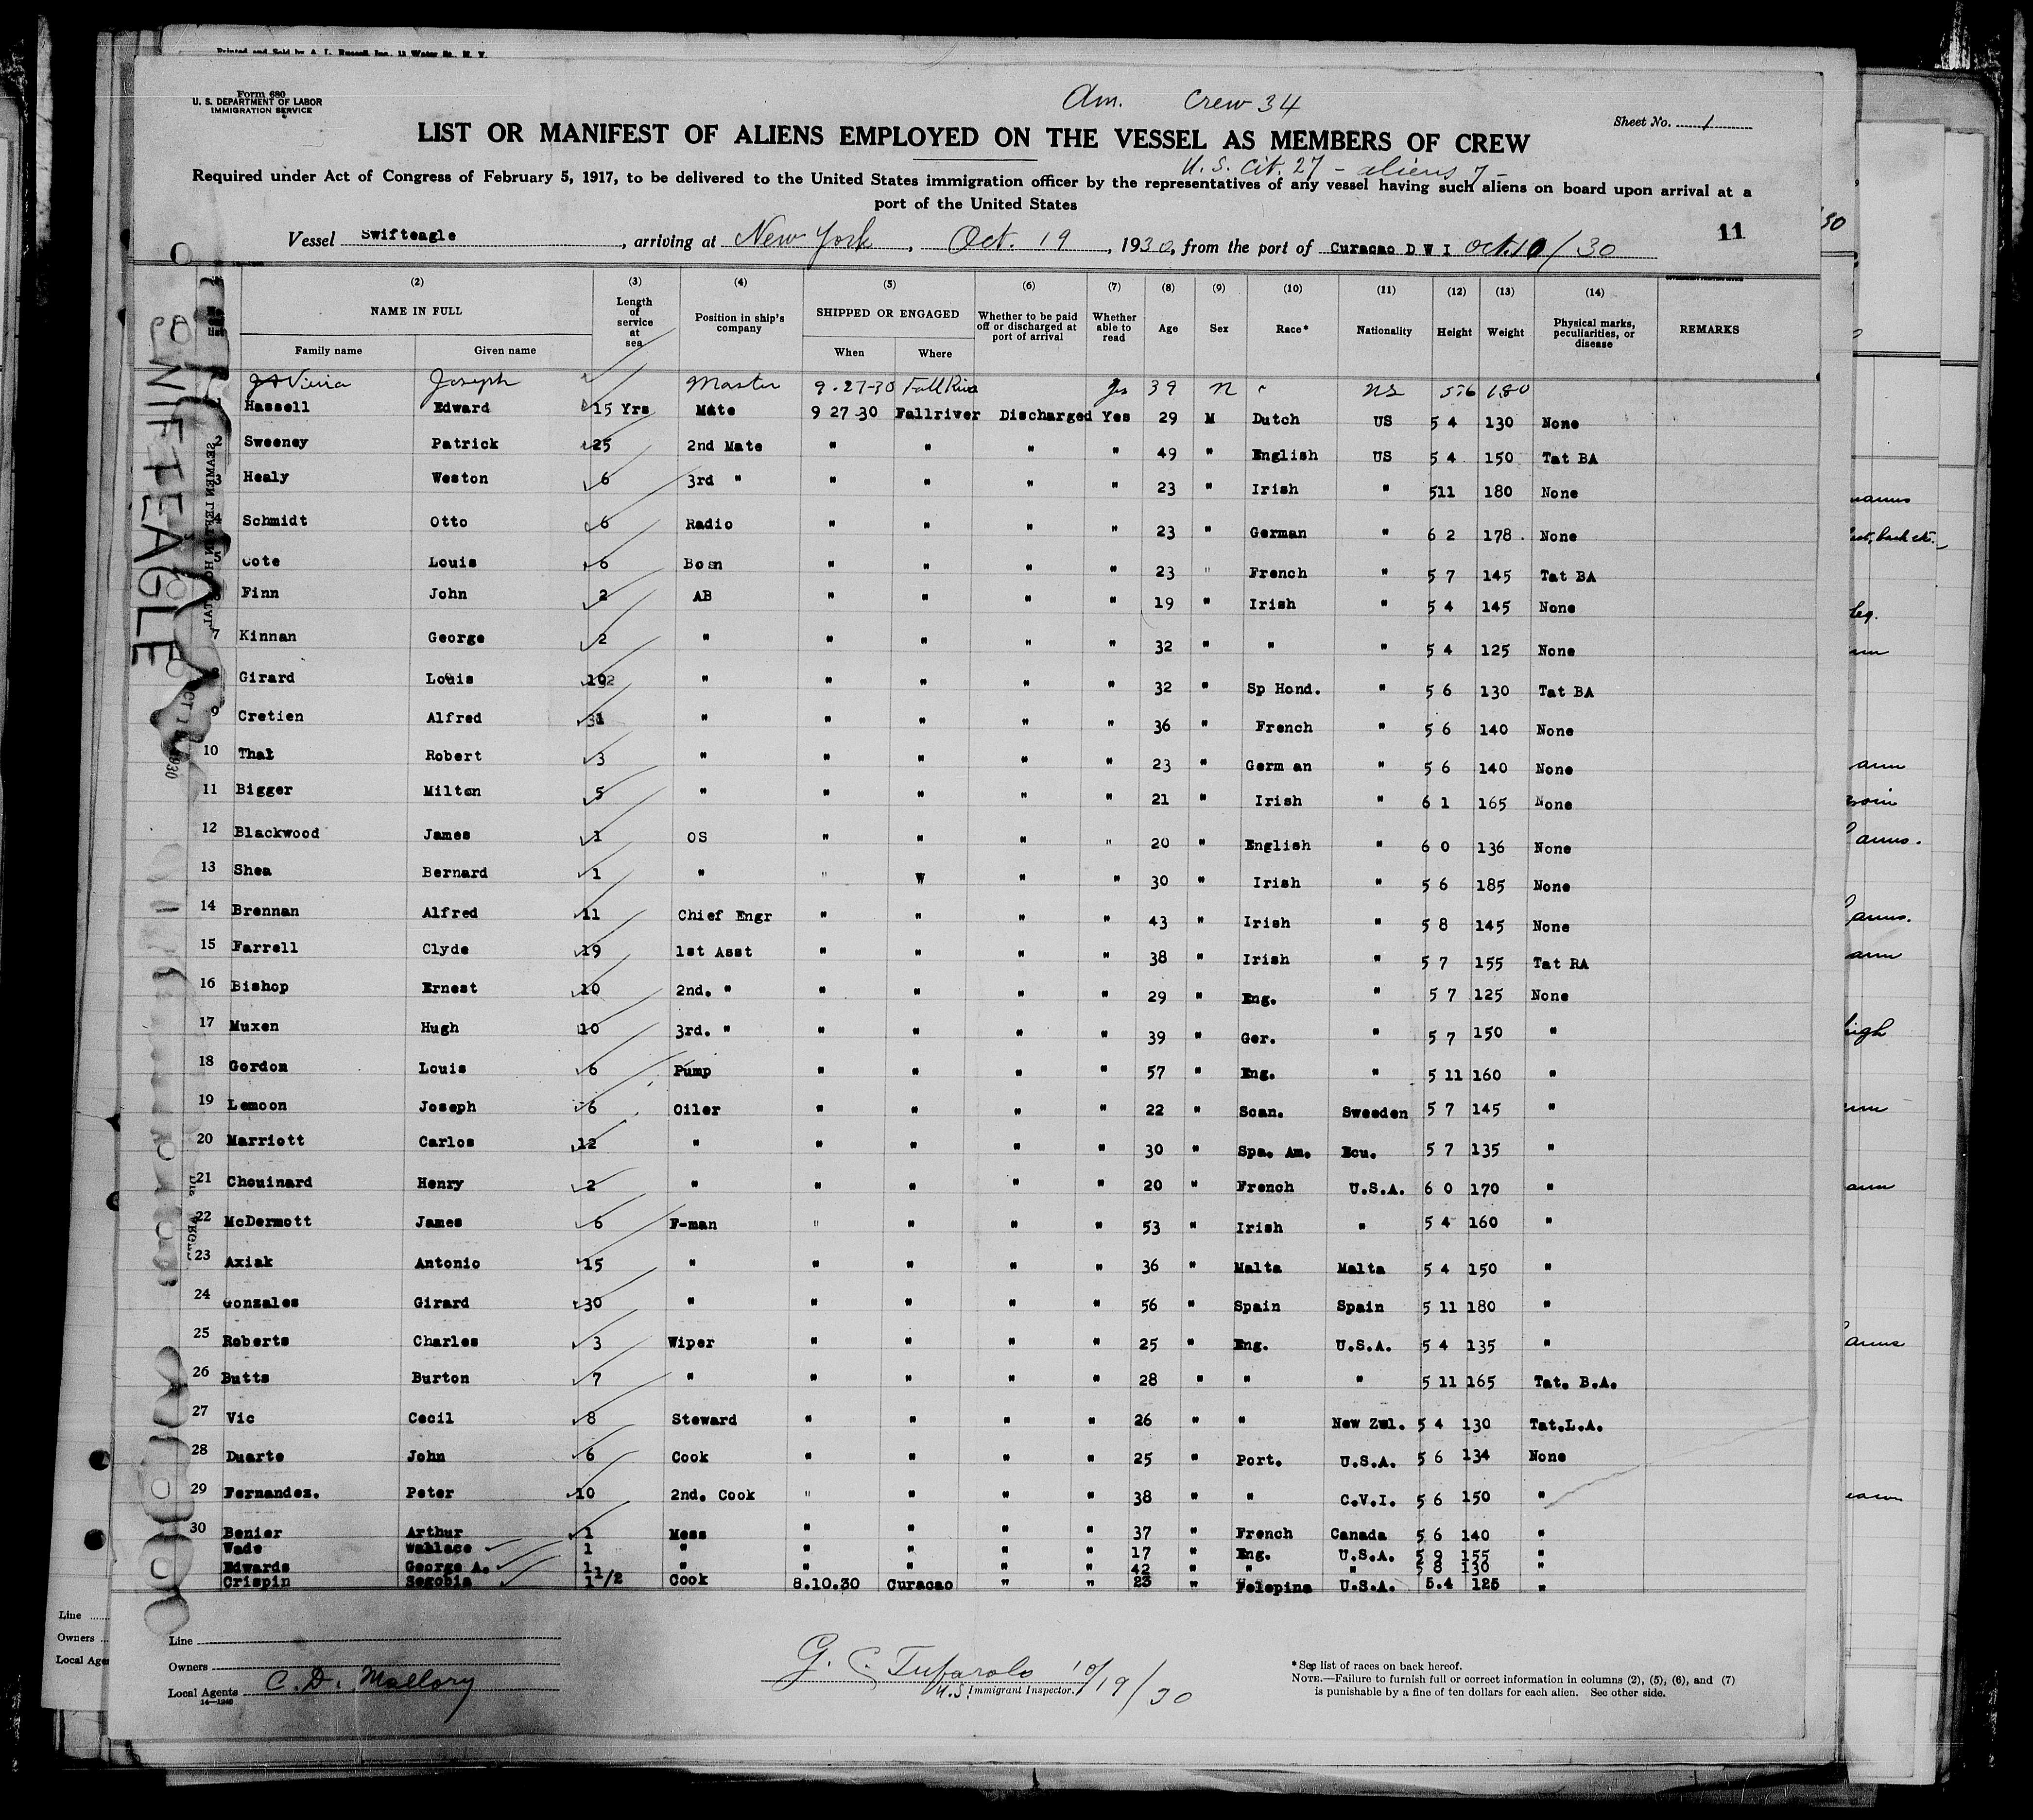 Printed and Sold by A. L. Russell Inc. 11 Water St. N. Y.
Form 680
U. S. DEPARTMENT OF LABOR
IMMIGRATION SERVICE
Am. Crew 34
Sheet No. 1
LIST OR MANIFEST OF ALIENS EMPLOYED ON THE VESSEL AS MEMBERS OF CREW
U.S. Cit. 27 - aliens 7 -
Required under Act of Congress of February 5, 1917, to be delivered to the United States immigration officer by the representatives of any vessel having such aliens on board upon arrival at a
port of the United States
11
Vessel Swifteagle, arriving at New York, Oct. 19, 1930, from the port of Curacao D W I Oct. 10/30
(2) (3) (4) (5) (6) (7) (8) (9) (10) (11) (12) (13) (14)
No. on list NAME IN FULL Length of service at sea Position in ship's company SHIPPED OR ENGAGED Whether to be paid off or discharged at port of arrival Whether able to read Age Sex Race* Nationality Height Weight Physical marks, peculiarities, or disease REMARKS
Family name Given name When Where
Vieira Joseph Master 9-27-30 Fall River yes 39 180
1 Hassell Edward 15 Yrs Mate 9 27 30 Fallriver Discharged Yes 29 M Dutch US 5 4 130 None
2 Sweeney Patrick 25 2nd Mate " " " " 49 " English US 5 4 150 Tat BA
3 Healy Weston 6 3rd " " " " " 23 " Irish " 511 180 None
4 Schmidt Otto 6 Radio " " " " 23 " German " 6 2 178 . None
5 Cote Louis 6 Bosn " " " " 23 " French " 5 7 145 Tat BA
6 Finn John 2 AB " " " " 19 " Irish " 5 4 145 None
7 Kinnan George 2 " " " " " 32 " " " 5 4 125 None
8 Girard Louis " " " " " 32 " Sp Hond. " 5 6 130 Tat BA
9 Cretien Alfred " " " " " 36 " French " 5 6 140 None
10 Robert 3 " " " " " 23 " Germ an " 5 6 140 None
11 Bigger Milton 5 " " " " " 21 " Irish " 6 1 165 None
12 Blackwood James 1 OS " " " " 20 " English " 6 0 136 None
13 Shea Bernard 1 " " W " " 30 " Irish " 5 6 185 None
14 Brennan Alfred 11 Chief Engr " " " " 43 " Irish " 5 8 145 None
15 Farrell Clyde 19 1st Asst " " " " 38 " Irish " 5 7 155 Tat RA
16 Bishop Ernest 10 2nd. " " " " " 29 " Eng. " 5 7 125 None
17 Muxen Hugh 10 3rd. " " " " " 39 " Ger. " 5 7 150 "
18 Gordon Louis 6 Pump " " " " 57 " Eng. " 5 11 160 "
19 Lemoon Joseph 6 Oiler " " " " 22 " Scan. Sweeden 5 7 145 "
20 Marriott Carlos 12 " " " " " 30 " Spa. Am. Ecu. 5 7 135 "
21 Chouinard Henry 2 " " " " " 20 " French U.S.A. 6 0 170 "
22 McDermott James 6 F-man " " " " 53 " Irish " 5 4 160 "
23 Axiak Antonio 15 " " " " " 36 " Malta Malta 5 4 150 "
24 Gonzales Girard 30 " " " " " 56 " Spain Spain 5 11 180 "
25 Roberts Charles 3 Wiper " " " " 25 " Eng. U.S.A. 5 4 135 "
26 Butts Burton 7 " " " " " 28 " " " 5 11 165 Tat. B.A.
27 Vic Cecil 8 Steward " " " " 26 " " New Zel. 5 4 130 Tat.L.A.
28 Duarte John 6 Cook " " " " 25 " Port. U.S.A. 5 6 134 None
29 Fernandez. Peter 10 2nd. Cook " " " " 38 " " C.V.I. 5 6 150 "
30 Benier Arthur 1 Mess " " " " 37 " French Canada 5 6 140 "
Wade Wallace 1 " " " " " 17 " Eng. U.S.A. 5 9 155 "
Edwards George A. 1 " " " " " 42 " " " 5 8 130 "
Crispin Segobia 1 1/2 Cook 8.10.30 Curacao " " 23 " Felepine U.S.A. 5.4 125 "
SWIFTEAGLE
Line
Owners
Local Agents C. D. Mallory
14-1240
G. C. Tufarolo 10/19/30
U.S. Immigrant Inspector.
* See list of races on back hereof.
NOTE.—Failure to furnish full or correct information in columns (2), (5), (6), and (7)
is punishable by a fine of ten dollars for each alien. See other side.
Line
Owners